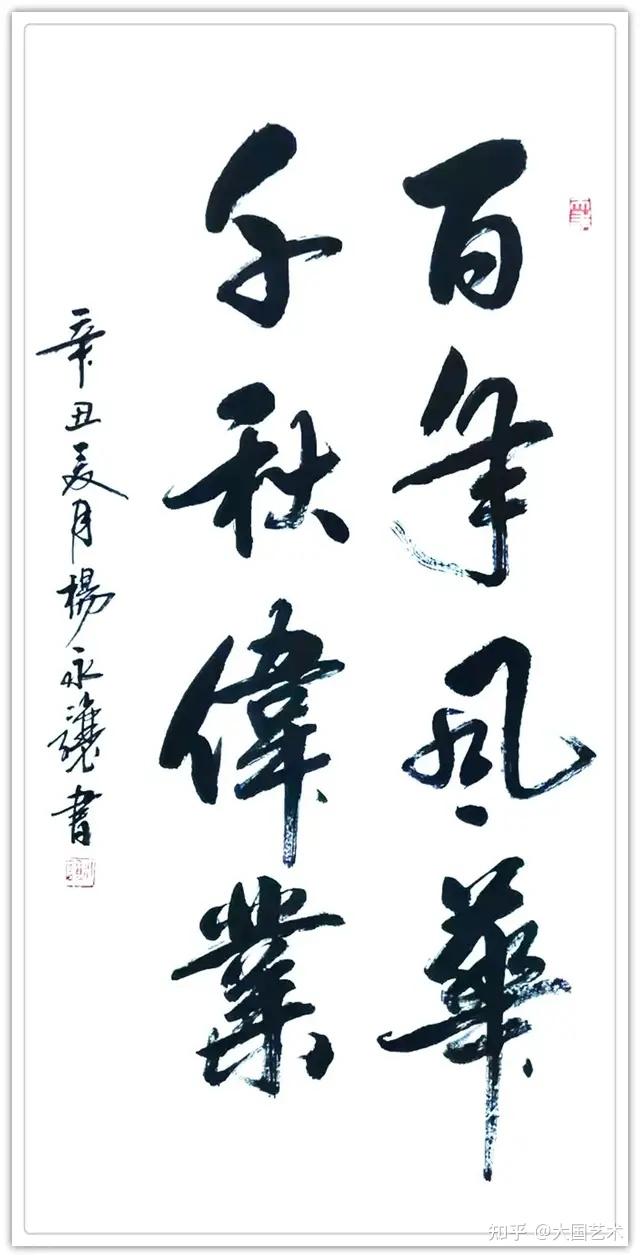 百年風華
千秋偉業
辛丑夏月楊永讓書
知乎 @大国艺术